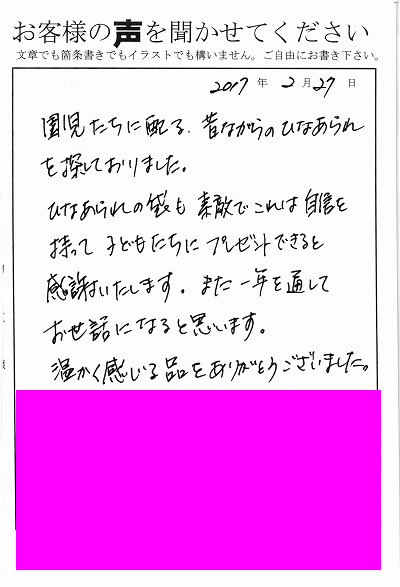 お客様の声を聞かせてください
文章でも箇条書きでもイラストでも構いません。ご自由にお書き下さい。
2017 年 2 月 27 日
園児たちに配る、昔ながらのひなあられ
を探しておりました。
ひなあられの袋も素敵でこれは自信を
持って子どもたちにプレゼントできると
感謝いたします。また一年を通して
お世話になると思います。
温かく感じる品をありがとうございました。